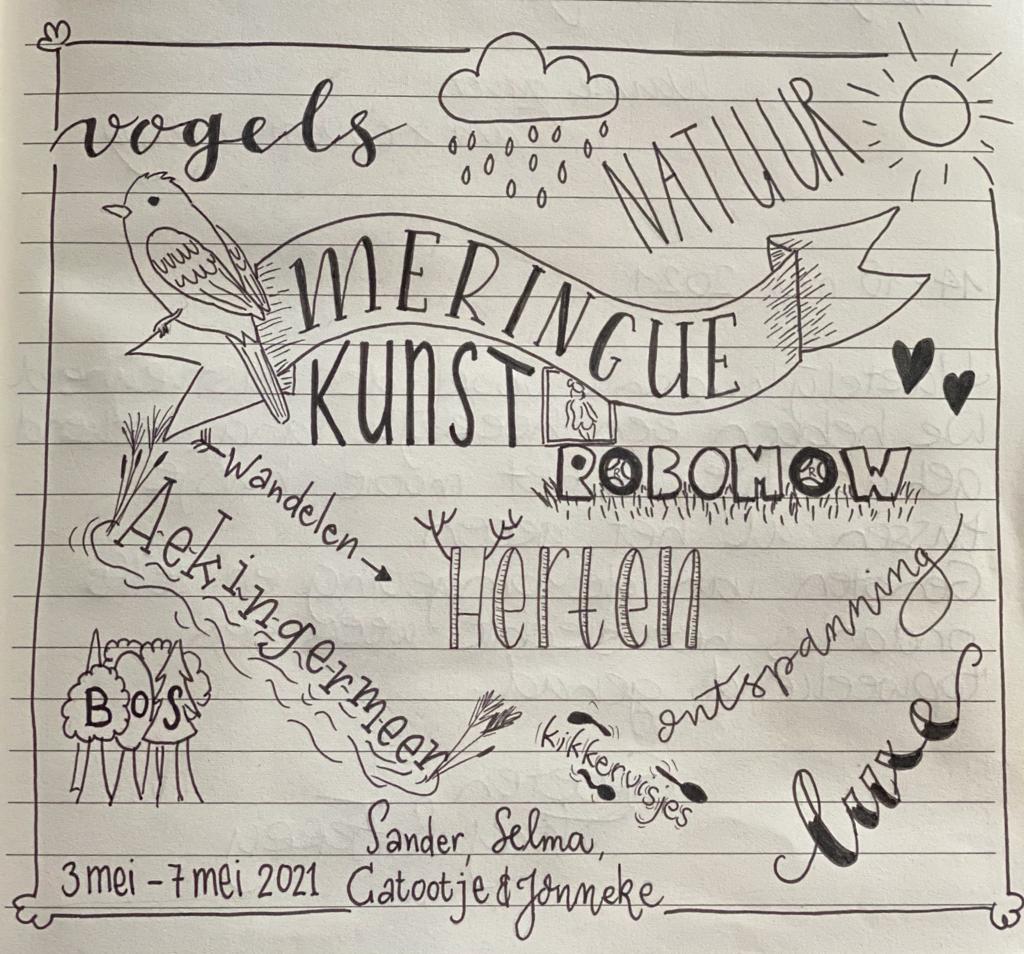 vogels
NATUUR
MERINGUE
KUNST
ROBOMOW
wandelen
Aekingermeer
Herten
ontspanning
BOS
kikkervisjes
luxe
Sander, Selma,
3 mei - 7 mei 2021 Catootje & Jonneke